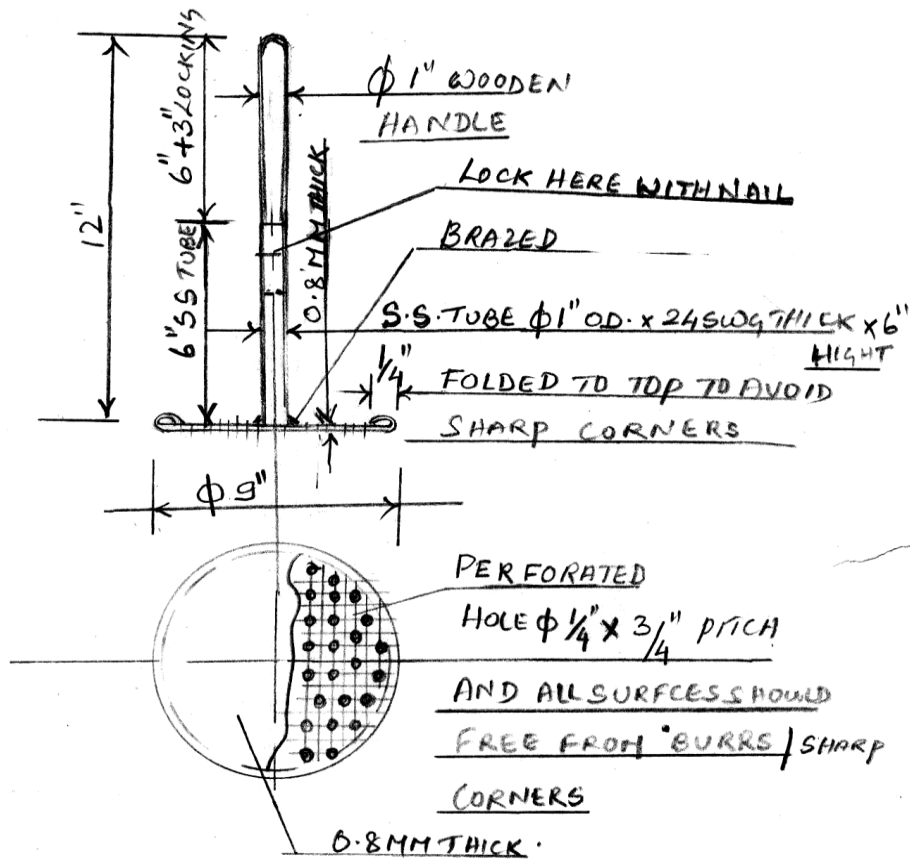 12"
6"+3" LOCKING
6" SS TUBE
φ 1" WOODEN
HANDLE
0.8 MM THICK
LOCK HERE WITH NAIL
BRAZED
S.S. TUBE φ1" O.D. x 24 SWG THICK x 6"
HIGHT
1/4"
FOLDED TO TOP TO AVOID
SHARP CORNERS
φ 9"
PERFORATED
HOLE φ 1/4" x 3/4" PITCH
AND ALL SURFCES SHOULD
FREE FROM BURRS / SHARP
CORNERS
0.8 MM THICK.